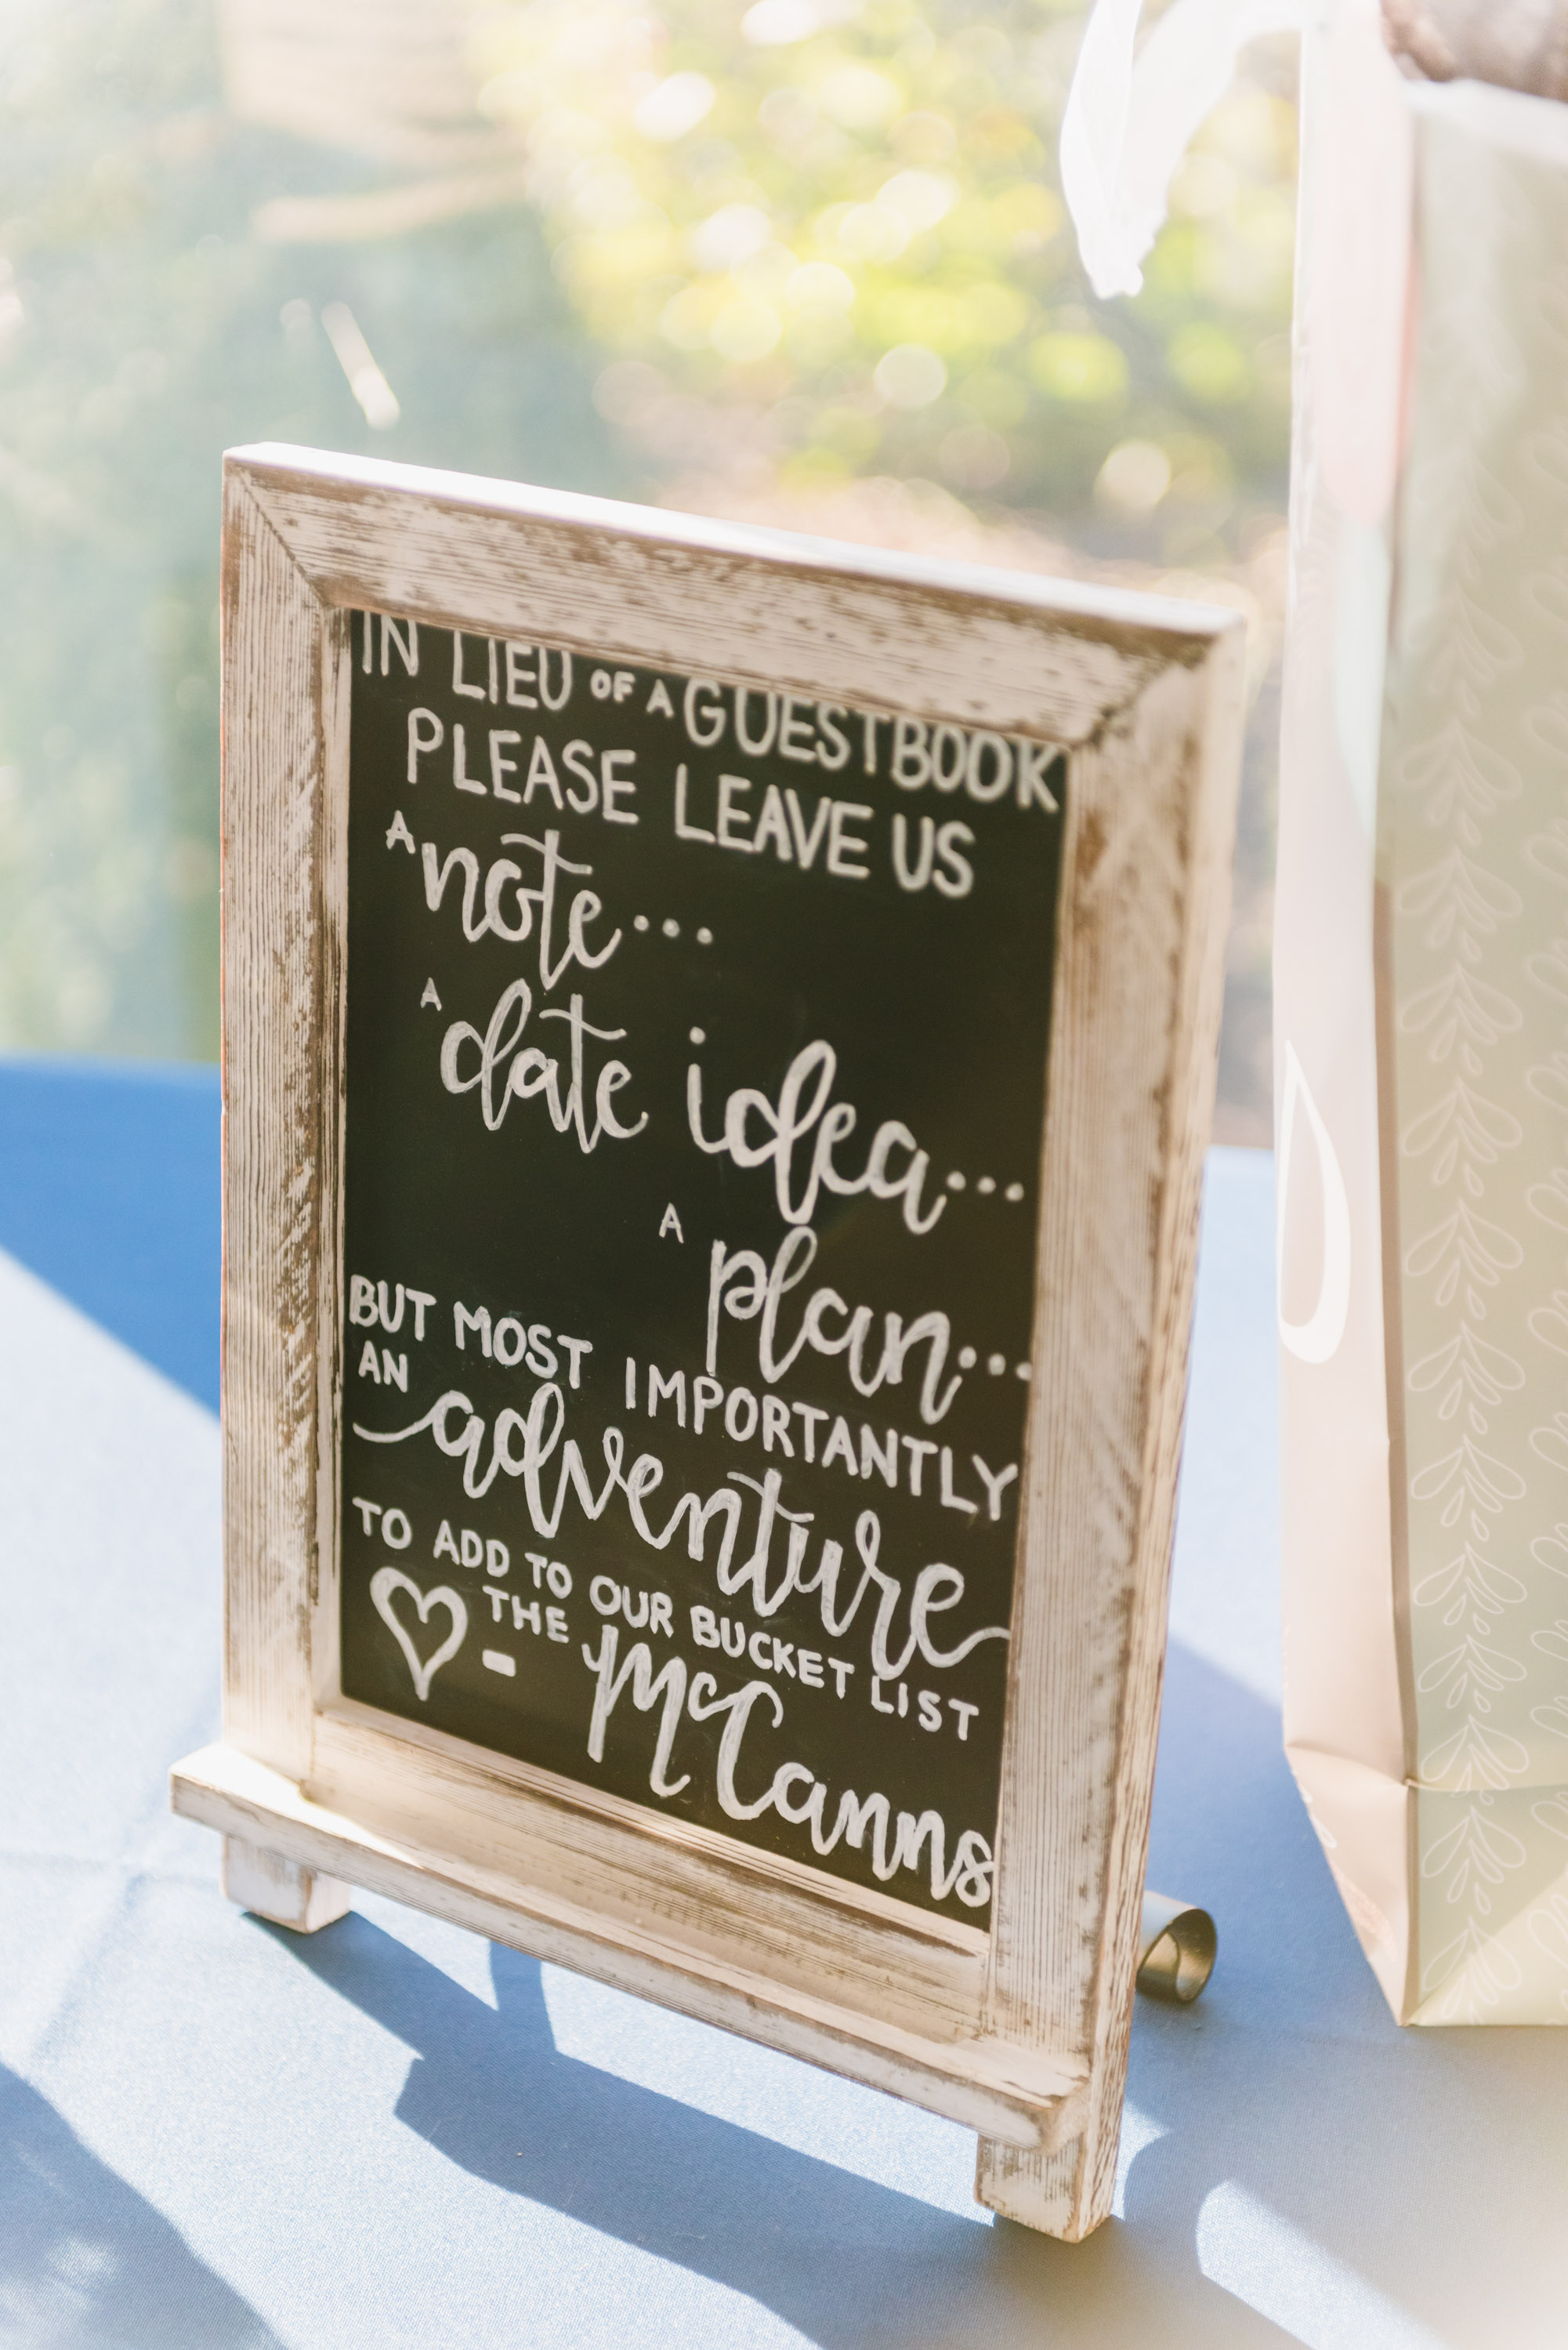 IN LIEU OF A GUESTBOOK
PLEASE LEAVE US
A note...
A date idea...
A plan...
BUT MOST IMPORTANTLY
AN adventure
TO ADD TO OUR BUCKET LIST
♡ - THE McCanns